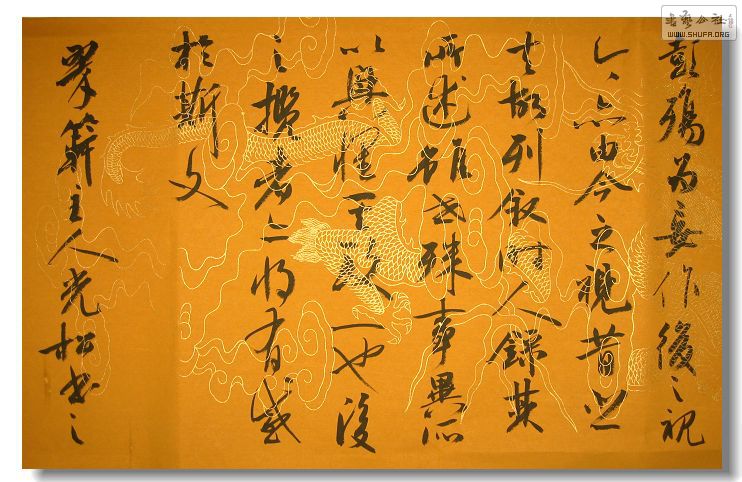 彭殤為妄作後之視
今亦由今之視昔悲
夫故列叙時人錄其
所述雖世殊事異所
以興懷其致一也後
之攬者亦將有感
於斯文
翠簳主人光松書之
书艺公社
WWW.SHUFA.ORG